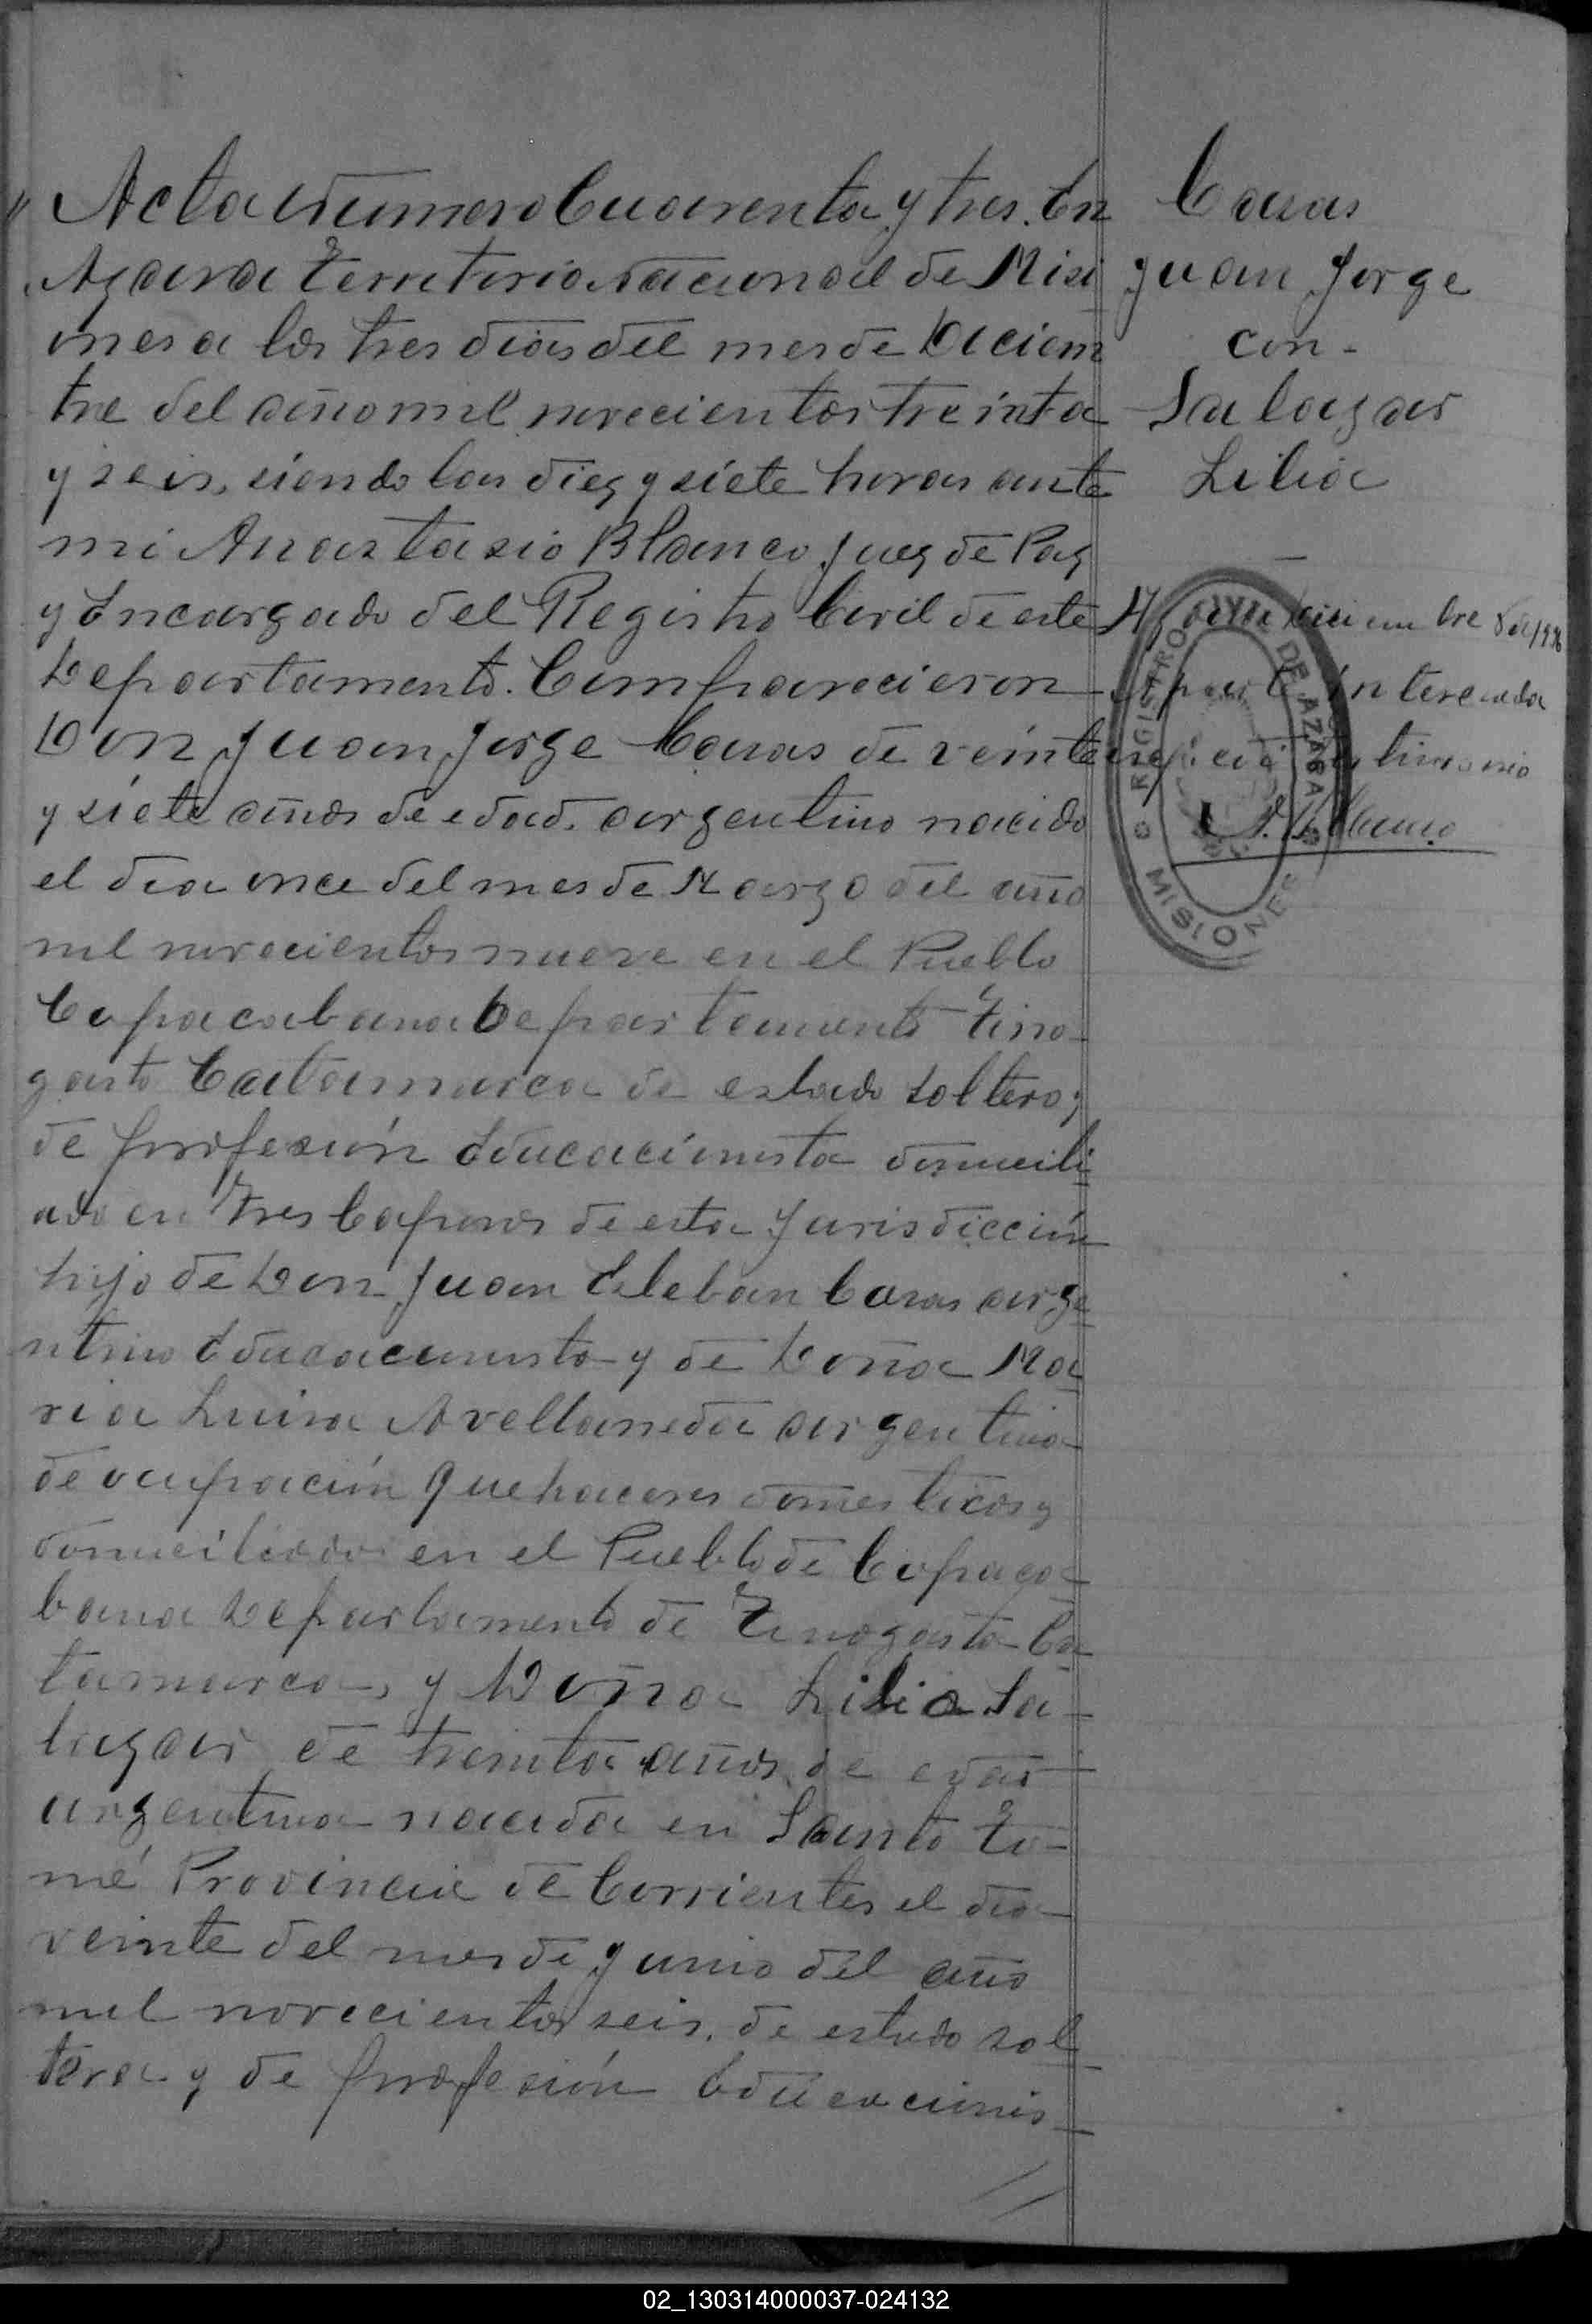 Acta Número Cuarenta y tres. En
Azara Territorio Nacional de Misi
ones a los tres dias del mes de Diciem
bre del año mil novecientos treinta
y seis, siendo las diez y siete horas ante
mi Anastasio Blanco Juez de Paz
y Encargado del Registro Civil de este
Departamento. Comparecieron
Don Juan Jorge Casas de veinte
y siete años de edad. argentino nacido
el dia once del mes de Marzo del año
mil novecientos nueve en el Pueblo
Copacabana Departamento Tino-
gasta Catamarca de estado soltero,
de profesión Educacionista domicili
ado en Tres Capones de esta Jurisdicción
hijo de Don Juan Esteban Casas arge
ntino Educacionista y de Doña Ma
ria Luisa Avellaneda argentina
de ocupación quehaceres domesticos y
domiciliados en el Pueblo de Copaca-
bana Departamento de Tinogasta Ca
tamarca, y Doña Lilia Sa-
lazar de treinta años de edad
argentina nacida en Santo To-
mé Provincia de Corrientes el dia
veinte del mes de Junio del año
mil novecientos seis, de estado sol
tera y de profesión Educacionis
Casas
Juan Jorge
con-
Salazar
Lilia
Diciembre de 1936
parte interesada
testimonio
A. Blanco
REGISTRO CIVIL DE AZARA
MISIONES
02_130314000037-024132